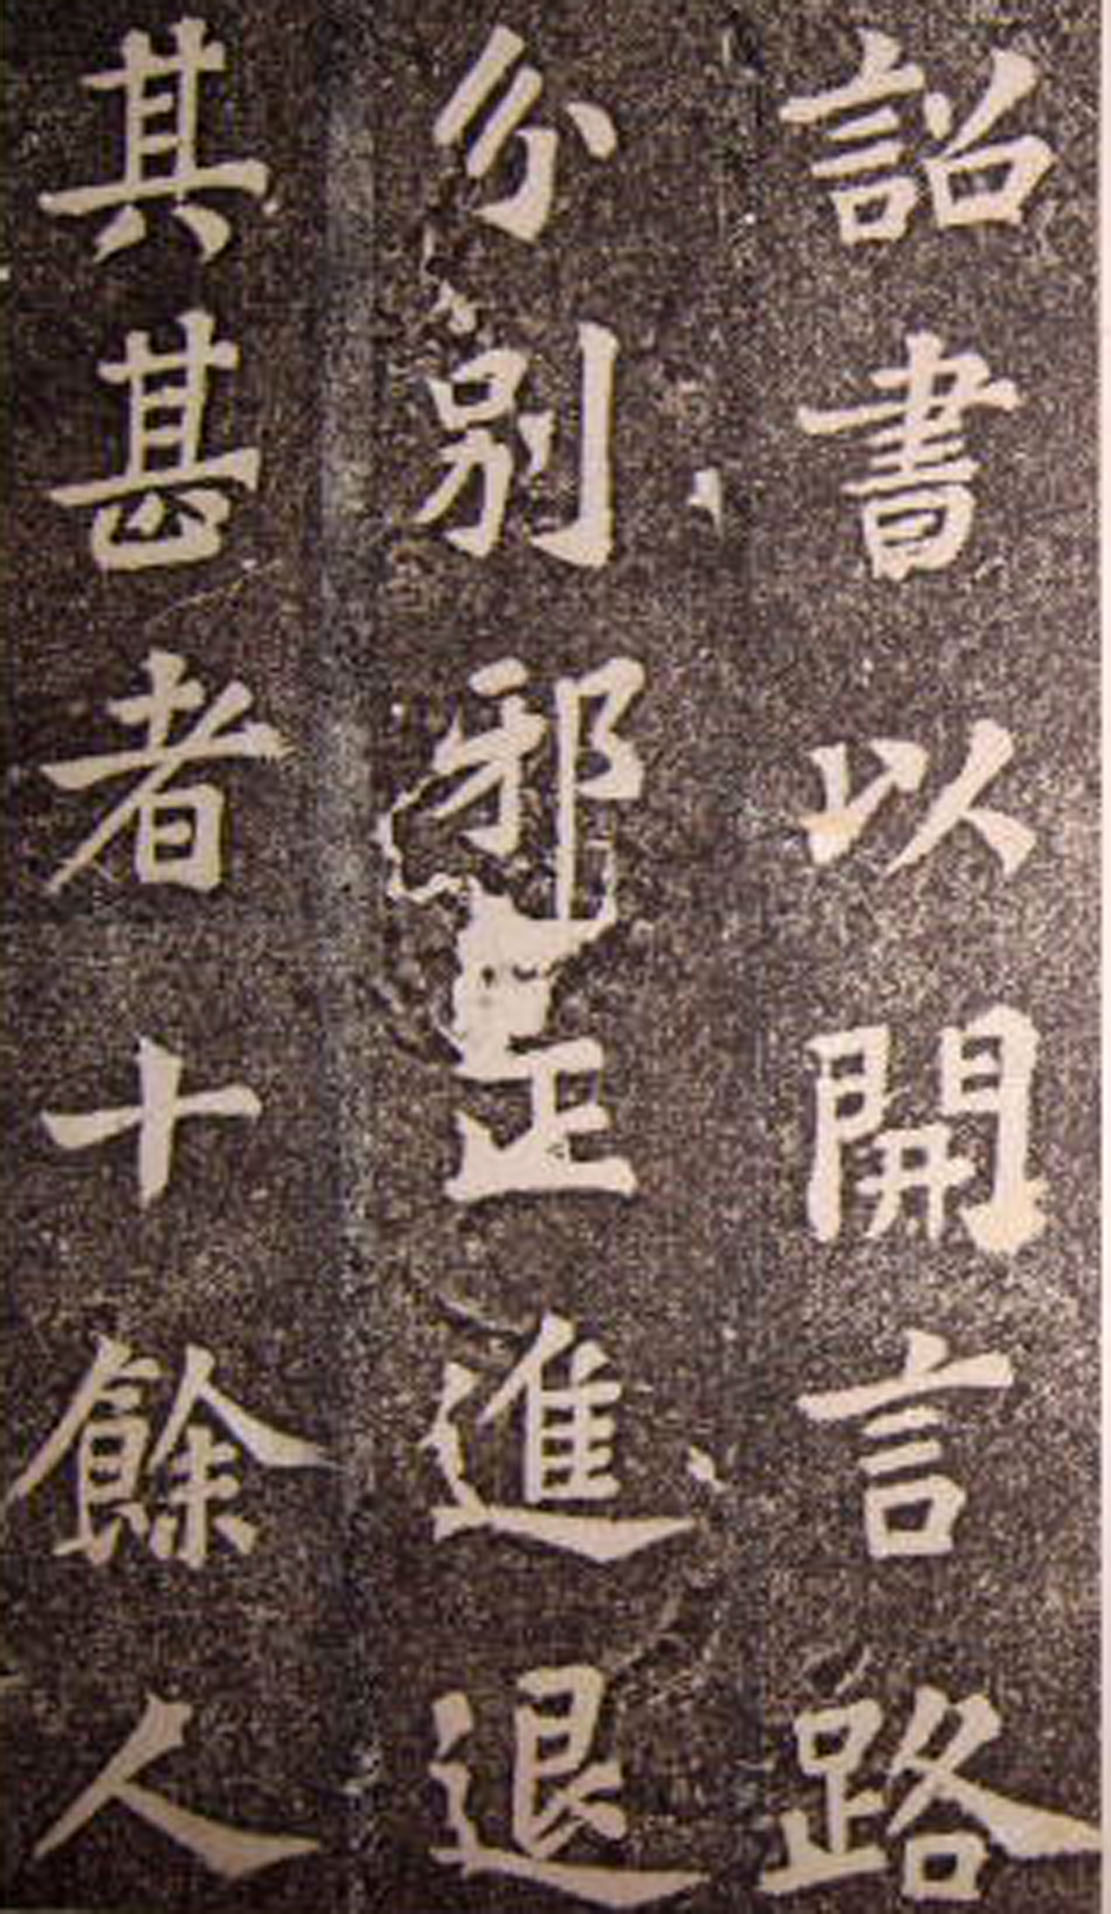 詔書以開言路
分別邪正進退
其甚者十餘人